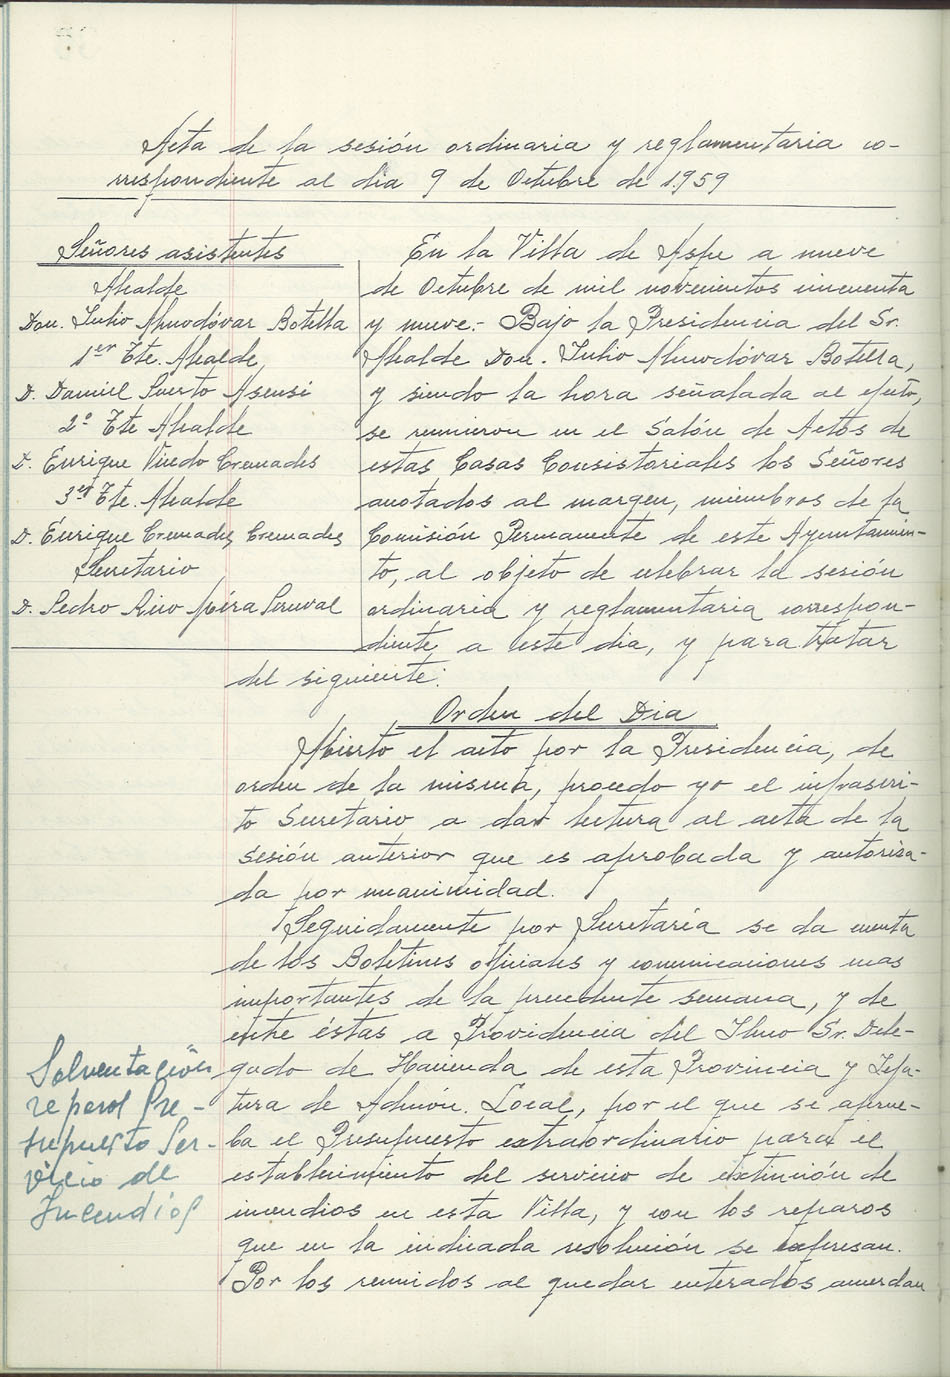 Acta de la sesión ordinaria y reglamentaria co-
rrespondiente al dia 9 de Octubre de 1.959
Señores asistentes
Alcalde
Don. Julio Almodóvar Botella
1er Tte. Alcalde,
D. Daniel Puerto Asensi
2º Tte Alcalde
D. Enrique Viñedo Cremades
3er Tte. Alcalde
D. Enrique Cremades Cremades
Secretario
D. Pedro Rico Perceval
En la Villa de Aspe a nueve
de Octubre de mil novecientos cincuenta
y nueve.- Bajo la Presidencia del Sr.
Alcalde Don. Julio Almodóvar Botella,
y siendo la hora señalada al efecto,
se reunieron en el Salón de Actos de
estas Casas Consistoriales los Señores
anotados al margen, miembros de la
Comisión Permanente de este Ayuntamien-
to, al objeto de celebrar la sesión
ordinaria y reglamentaria correspon-
diente a este dia, y para tratar
del siguiente:
Orden del Dia
Abierto el acto por la Presidencia, de
orden de la misma, procedo yo el infrascri-
to Secretario a dar lectura al acta de la
sesión anterior que es aprobada y autoriza-
da por unanimidad.
Seguidamente por Secretaría se da cuenta
de los Boletines oficiales y comunicaciones mas
importantes de la precedente semana, y de
entre éstas a Providencia del Ilmo Sr. Dele-
gado de Hacienda de esta Provincia y Jefa-
tura de Admón. Local, por el que se aprue-
ba el Presupuesto extraordinario para el
establecimiento del servicio de extinción de
incendios en esta Villa, y con los reparos
que en la indicada resolución se expresan.
Por los reunidos al quedar enterados acuerdan
Solventación
reparos Pre-
supuesto Ser-
vicio de
Incendios